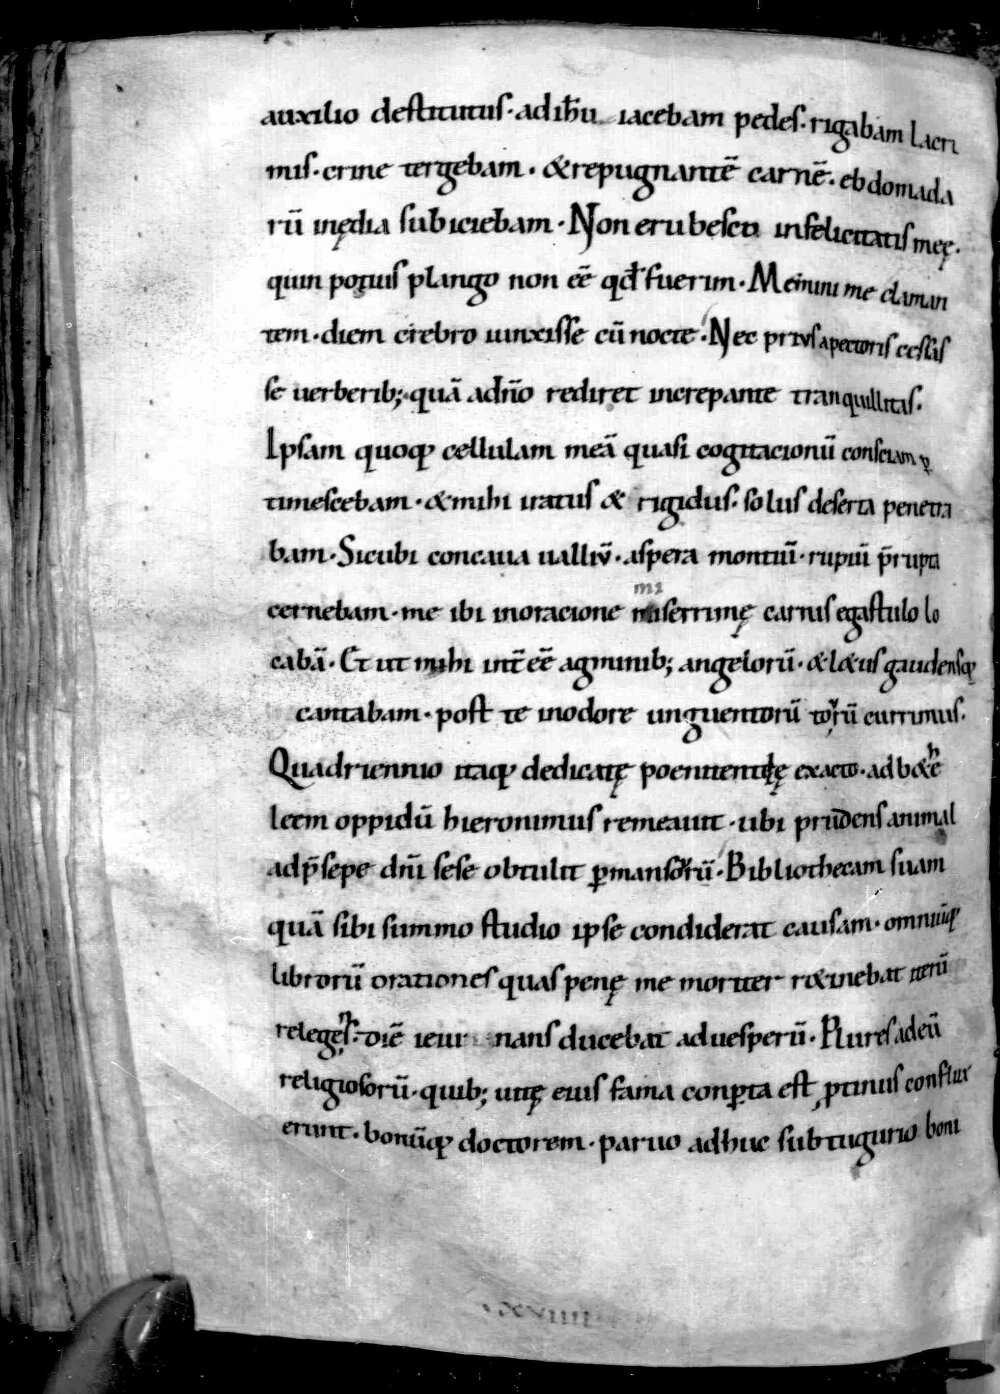 auxilio destitutus· ad ih̅u iacebam pedes· rigabam lacri
mis· crine tergebam· & repugnantē carnē· ebdomada
rū inędia subiciebam· Non erubesco infelicitatis meę·
quin potius plango non eē qd̄ fuerim· Memini me claman
tem· diem crebro iunxisse cū nocte· Nec prius a pectoris cessas
se uerberib; quā ad n̄o rediret increpante tranquillitas·
Ipsam quoq; cellulam meā quasi cogitacionū consciam p
timescebam· & mihi iratus & rigidus· solus deserta penetra
bam· Sicubi concaua ualliū· aspera montiū· rupiū p̄rupta
cernebam· me ibi in oracione miserrimę carnis egastulo lo
cabā· Et ut mihi int̄ eē agminib; angelorū· & l&us gaudensq;
cantabam· post te in odore unguentorū torū currimus·
Quadriennio itaq; dedicatę poenitentię exacto· ad b&hē
leem oppidū hieronimus remeauit· ubi prudens animal
ad p̄sepe dn̄i sese obtulit p̱mansorū· Bibliothecam suam
quā sibi summo studio ipse condiderat causam· omniūq;
librorū orationes quas penę me moriter r&inebat iterū
releges· diē ieiunans ducebat ad uesperū· Plures adeū
religiosorū· quib; uitę eius fama conp̱ta est ꝓtinus conflux
erunt· bonūq; doctorem· paruo adhuc sub tugurio boni
·LXVIIII